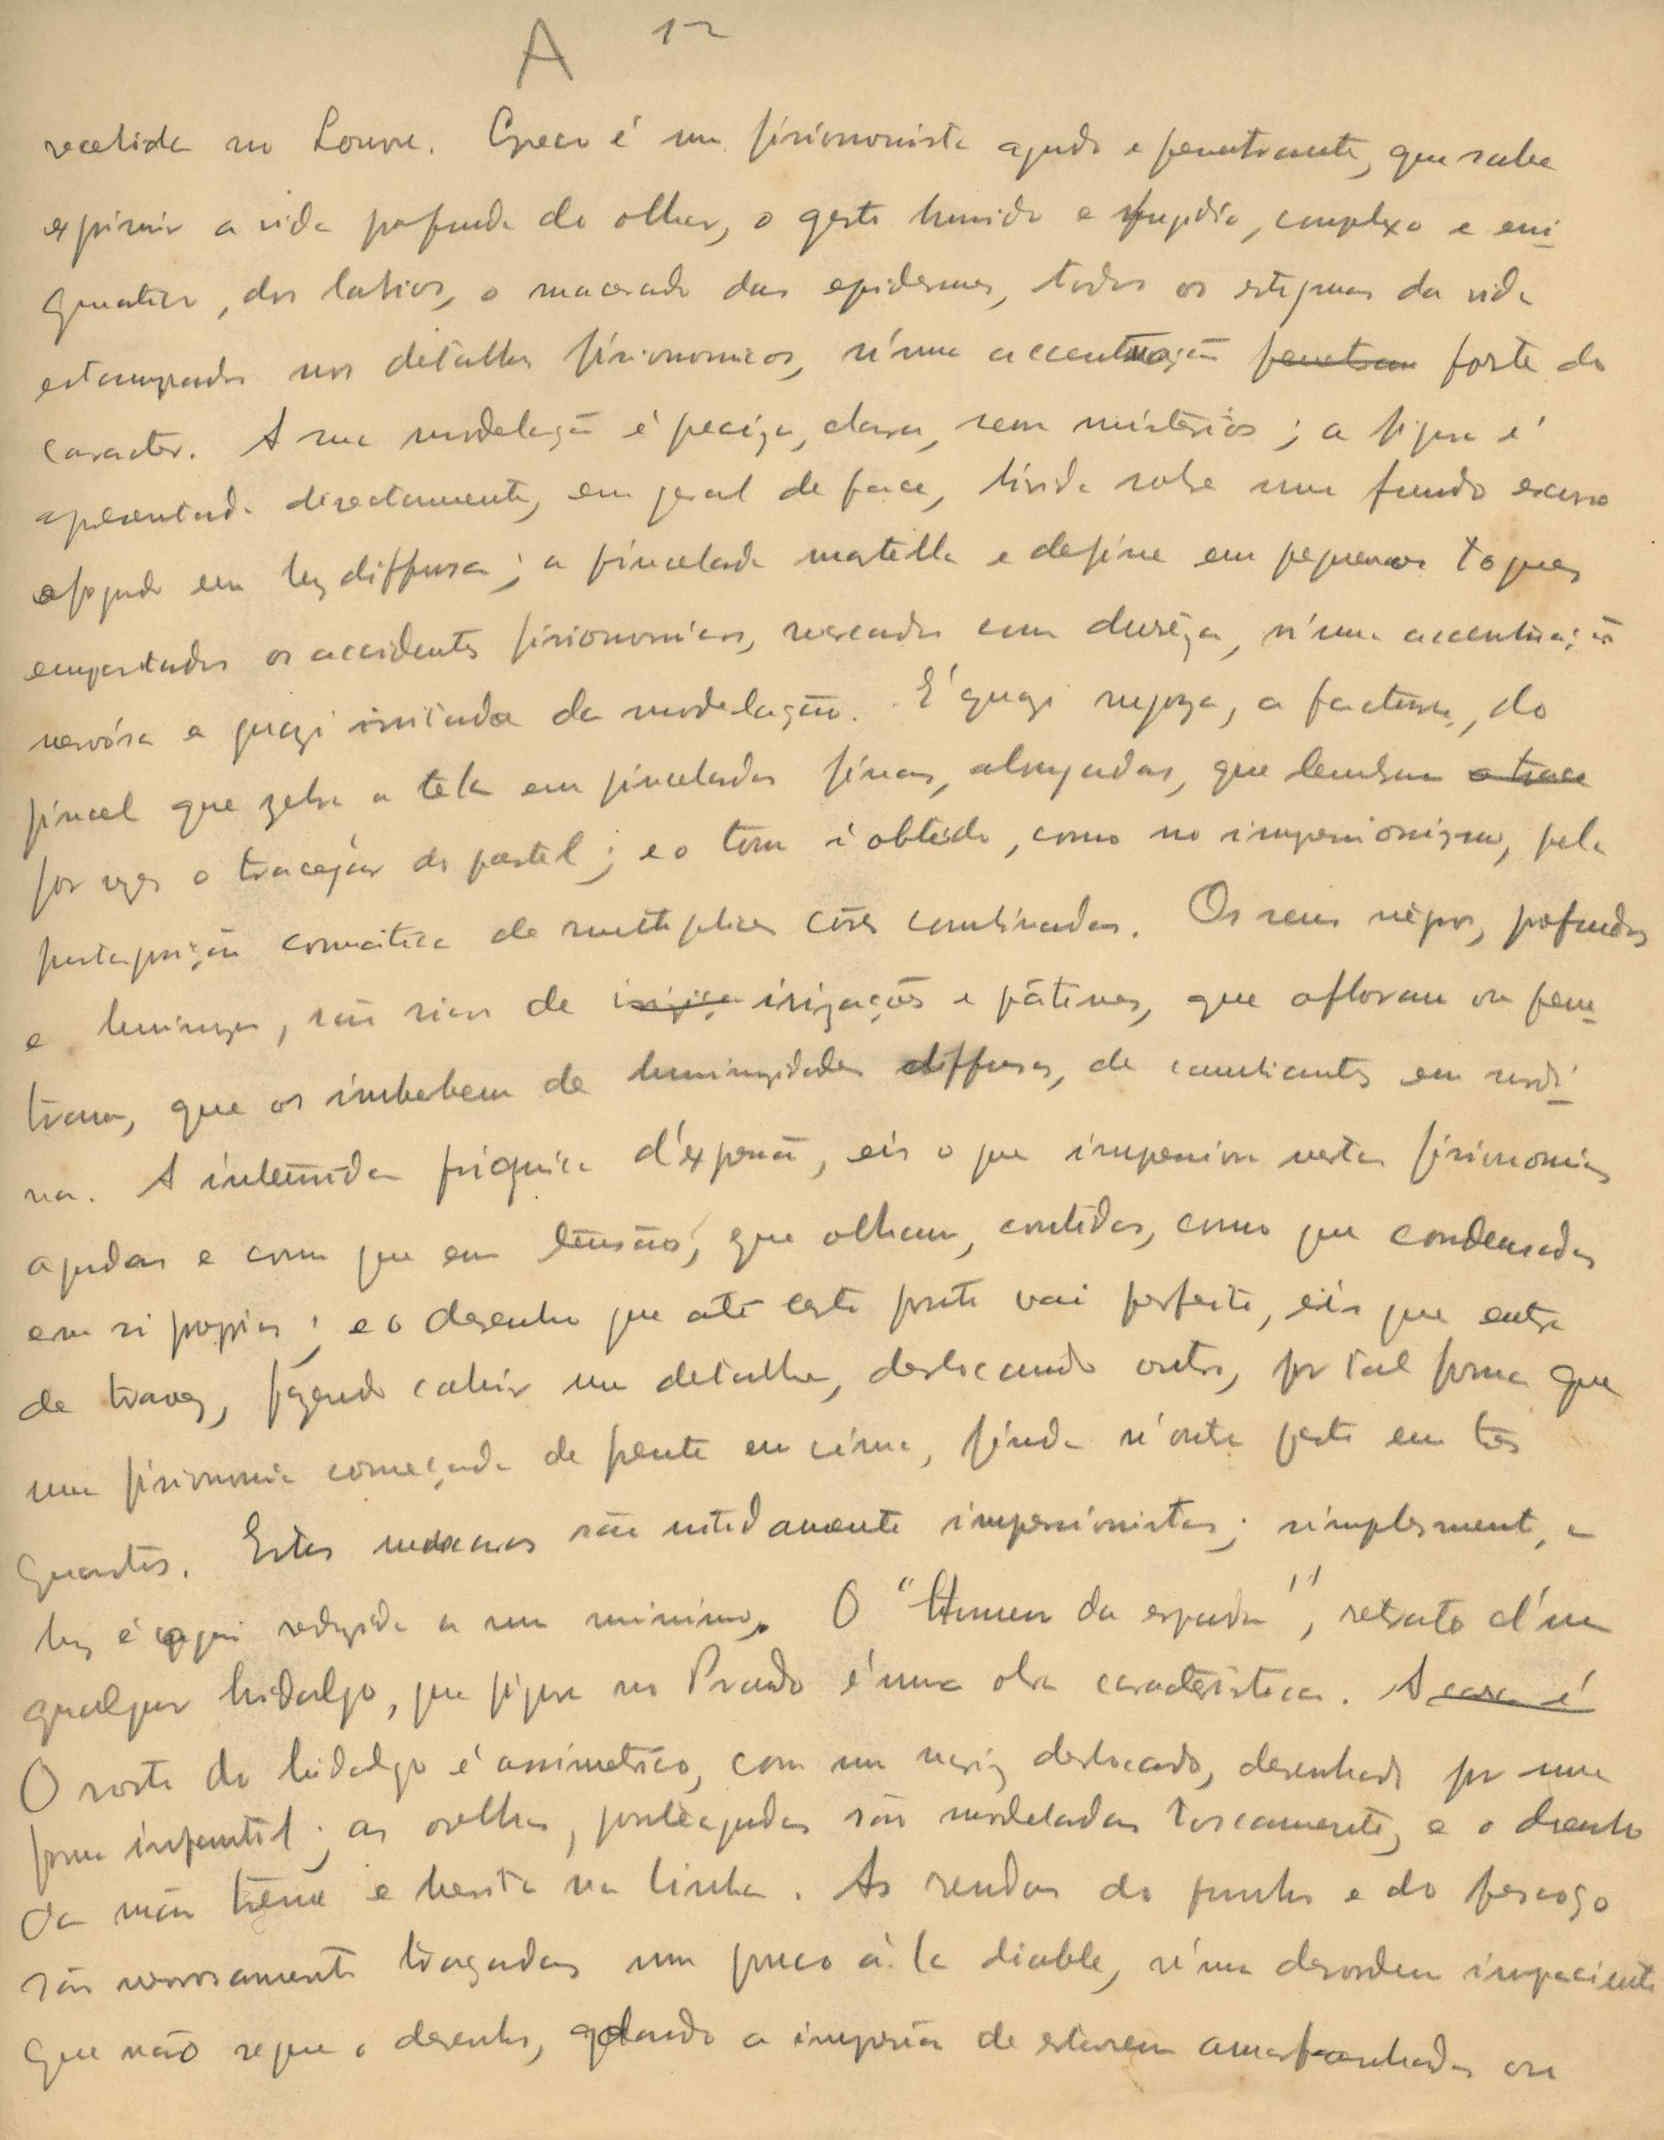 A 12
recolida no Louvre. Greco é um fisionomista agudo e penetrante, que sabe
exprimir a vida profunda do olhar, o gesto humido e, complexo e eni-
gmatico, dos labios, o macerado das epidermes, todos os estigmas da vida
estampados nos detalhes fisionomicos, n'uma accentuação penetran forte do
caracter. A sua modelação é preciza, clara, sem mistérios; a figura é
apresentada directamente, em geral de face, livida sobre um fundo escuro
afogado em luz diffusa; a pincelada martella e define em pequenos toques
empastados os accidentes fisionomicos, marcados com durêza, n'uma accentuação
nervósa e quazi irritada da modelação. É quazi rugoza, a factura, do
pincel que zebra a tela em pinceladas finas, alongadas, que lembram o trace
por vezes o tracejar do pastel; e o tom é obtido, como no impresionizmo, pela
justapozição cromatica de multiplices côres combinadas. Os seus négros, profundos
e luminozos, são ricos de irizações e pátinas, que afloram ou pene-
tram, que os imbebem de luminozidades diffusas, de cambiantes em surdi-
na. A intensidade psiquica d'expresão, eis o que impresiona nestas fisionomias
agudas e como que em tensão, que olham, contidas, como que condensadas
em si proprias; e o dezenho que até este ponto vai perfeito, eis que entra
de travez, fazendo cahir um detalhe, deslocando outro, por tal forma que
uma fisionomia começada de frente em cima, finda n'outro gesto em tres
quartos. Estes são nitidamente impresionistas; simplesmente, a
luz é aqui reduzida a um minimo. O "Homem da espada", retrato d'um
qualquer hidalgo, que figura no Prado é uma obra caracteristica. A cara é
O rosto do hidalgo é assimetrico, com um nariz deslocado, desenhado por uma
forma infantil; as orelhas, ponteagudas são modeladas toscamente, e o dezenho
da mão treme e hesita na linha. As rendas do punho e do pescoço
são nervosamente traçadas um pouco à la diable, n'uma desordem impaciente
que não segue o desenho, dando a impresão de estarem amarfanhadas ou